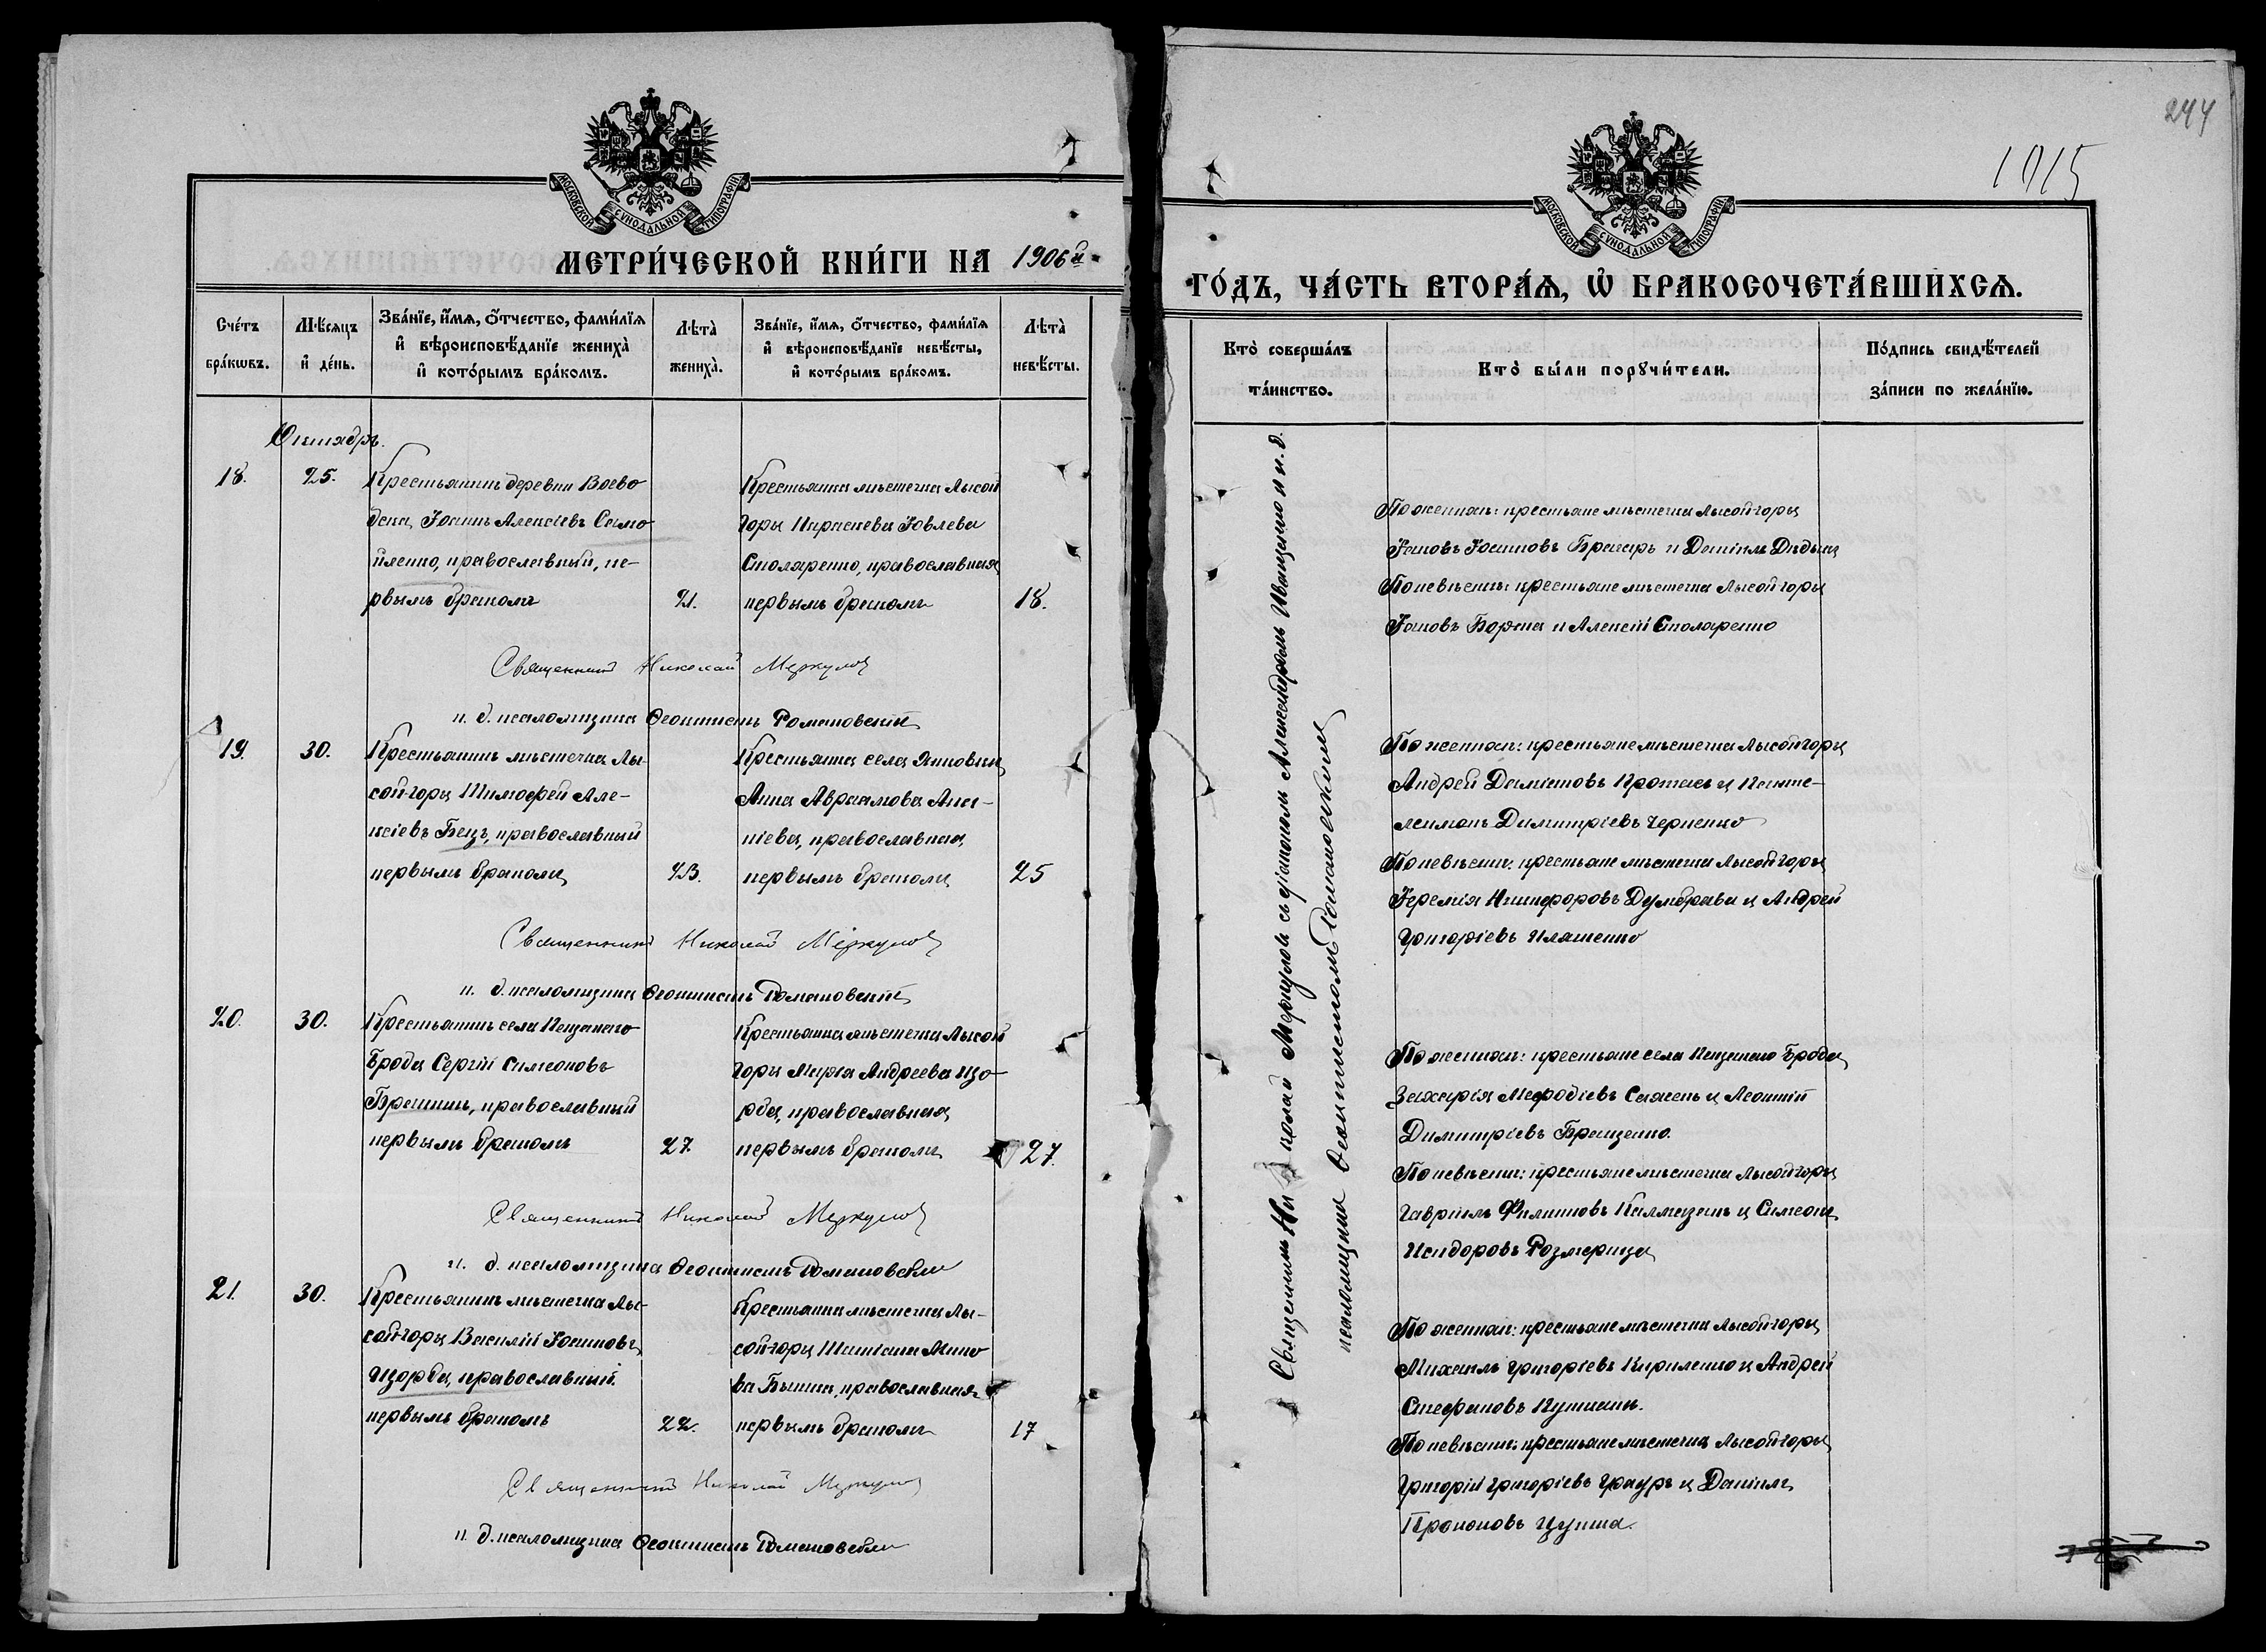 244
1015
МОСКОВСКОЙ СѴНОДАЛЬНОЙ ТИПОГРАФІИ
МОСКОВСКОЙ СѴНОДАЛЬНОЙ ТИПОГРАФІИ
МЕТРИ́ЧЕСКОЙ КНИ́ГИ НА 1906й
Сче́тъ бра́кωвъ.
Мѣ́сяцъ и҆ де́нь.
Зва́нїе, и҆́мѧ, ѻ҆́тчество, фами́лїѧ
и҆ вѣроисповѣ́данїе жениха̀
и҆ кото́рымъ бра́комъ.
Лѣта̀ жениха̀.
Зва́нїе, и҆́мѧ, ѻ҆́тчество, фами́лїѧ
и҆ вѣроисповѣ́данїе невѣ́сты,
и҆ кото́рымъ бра́комъ.
Лѣта̀ невѣ́сты.
Октябрь.
18. 25.
Крестьянинъ деревни Воево
дска, Іоаннъ Алексіевъ Само
йленко, православный, пе-
рвымъ бракомъ
21.
Крестьянка мѣстечка Лысой
горы Параскева Іовлева
Столяренко, православная,
первымъ бракомъ
18.
Священникъ Николай Меркулов
и. д. псаломщика Феоктистъ Романовскій
19. 30.
Крестьянинъ мѣстечка Лы-
сой-горы Тимофей Але-
ксіевъ Бецъ, православный
первымъ бракомъ
23.
Крестьянка села
Анна Авраамова Ана-
ніева, православная,
первымъ бракомъ
25
Священникъ Николай Меркулов
и. д. псаломщика Феоктистъ Романовскій
20. 30.
Крестьянинъ села Песчанаго
Брода Сергій Симеоновъ
православный
первымъ бракомъ
27.
Крестьянка мѣстечка Лысой
горы Марѳа Андреева Що-
рба, православная,
первымъ бракомъ
27.
Священникъ Николай Меркулов
и. д. псаломщика Феоктистъ Романовскій
21. 30.
Крестьянинъ мѣстечка Лы-
сой-горы Василій Іоанновъ
Щорба, православный
первымъ бракомъ
22.
Крестьянка мѣстечка Лы-
сой-горы Татіана
православная
первымъ бракомъ
17
Священникъ Николай Меркулов
и. д. псаломщика Феоктистъ Романовскій
ГО́ДЪ, ЧА́СТЬ ВТОРА́Ѧ, Ѡ҆ БРАКОСОЧЕТА́ВШИХСѦ.
Кто̀ соверша́лъ та́инство.
Кто̀ бы́ли порꙋчи́тели.
По́дпись свидѣ́телей за́писи по жела́нїю.
Священникъ Николай Меркуловъ съ діакономъ Александромъ Иващенко и и. д.
псаломщика Феоктистомъ Романовскимъ
По женихѣ: крестьяне мѣстечка Лысой-горы
Іаковъ Іоанновъ и Даніилъ
По невѣстѣ: крестьяне мѣстечка Лысой-горы
Іаковъ и Алексій Столяренко
По женихѣ: крестьяне мѣстечка Лысой-горы
Андрей Даміановъ Протасъ и Панте-
леимонъ Димитріевъ Черненко
По невѣстѣ: крестьяне мѣстечка Лысой-горы
Іеремія Никифоровъ Думбрава и Андрей
Григоріевъ Иляшенко
По женихѣ: крестьяне села Песчанаго Брода
Захарія Меѳодіевъ и Леонтій
Димитріевъ
По невѣстѣ: крестьяне мѣстечка Лысой-горы
Гавріилъ Филипповъ Калмазанъ и Симеонъ
Исидоровъ Розмерица
По женихѣ: крестьяне мѣстечка Лысой-горы
Михаилъ Григоріевъ Кириленко и Андрей
Стефановъ
По невѣстѣ: крестьяне мѣстечка Лысой-горы
Григорій Григоріевъ Грауръ и Даніилъ